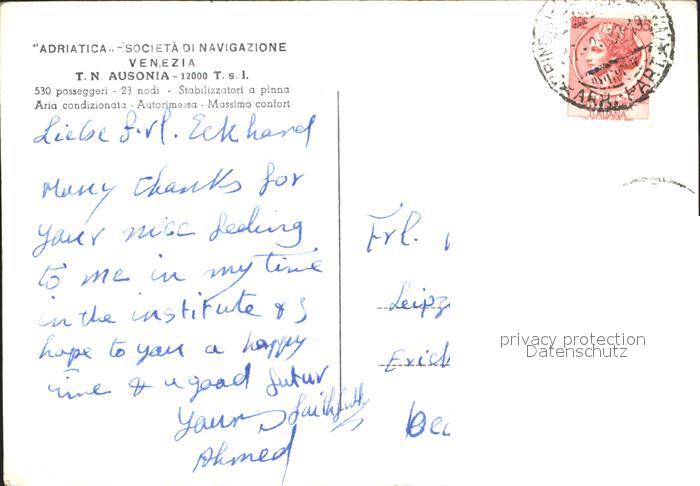 "ADRIATICA" - SOCIETÀ DI NAVIGAZIONE
VENEZIA
T. N. AUSONIA - 12000 T. s. l.
530 passeggeri - 23 nodi - Stabilizzatori a pinna
Aria condizionata - Autorimessa - Massimo confort
Liebe Frl. Eckhard
Many thanks for
your nice feeling
to me in my time
in the institute & I
hope to you a happy
time & a good futur
Yours faithfully
Ahmed
ITALIANA
ARR. PAR
Frl.
Leipz
Erich
privacy protection
Datenschutz